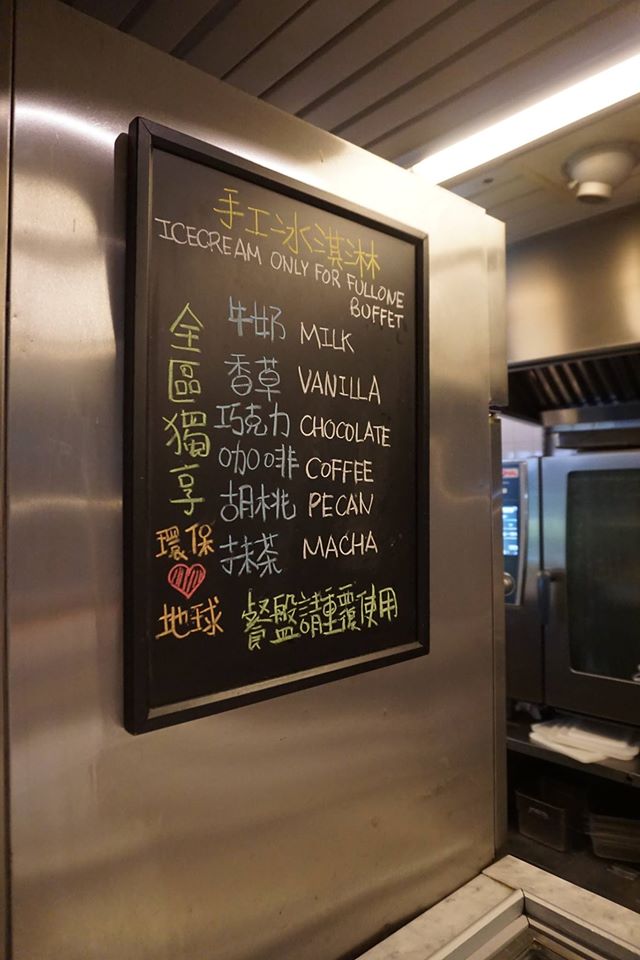 手工冰淇淋
ICECREAM ONLY FOR FULLONE
BUFFET
全區獨享
牛奶 MILK
香草 VANILLA
巧克力 CHOCOLATE
咖啡 COFFEE
胡桃 PECAN
抹茶 MACHA
環保
地球
餐盤請重覆使用